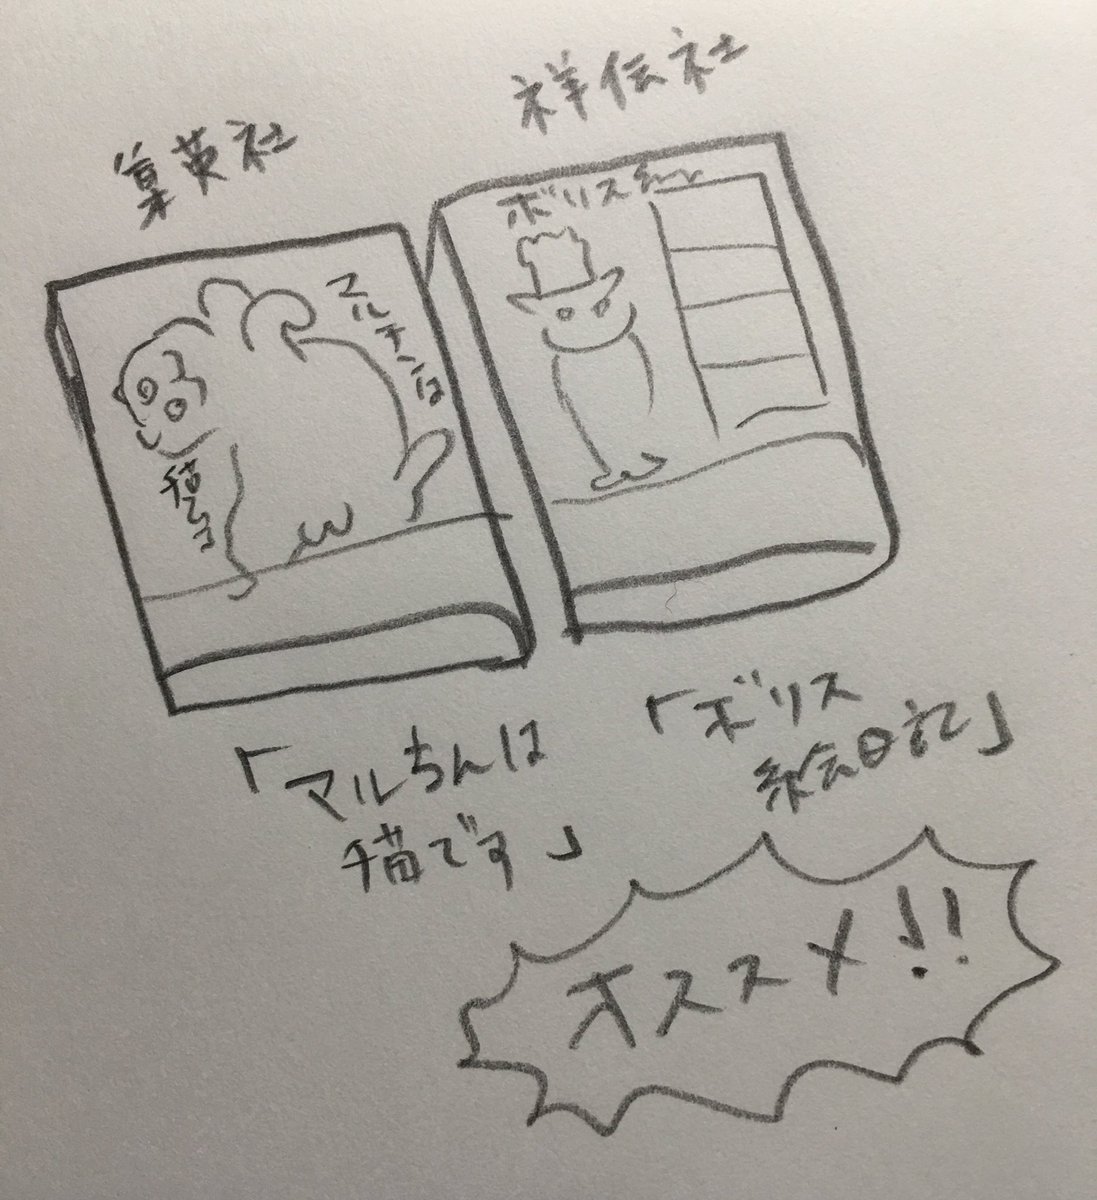 集英社
祥伝社
マルチンは
猫でヨ
ボリス
「マルちんは
猫です」
「ボリス
絵日記」
オススメ!!